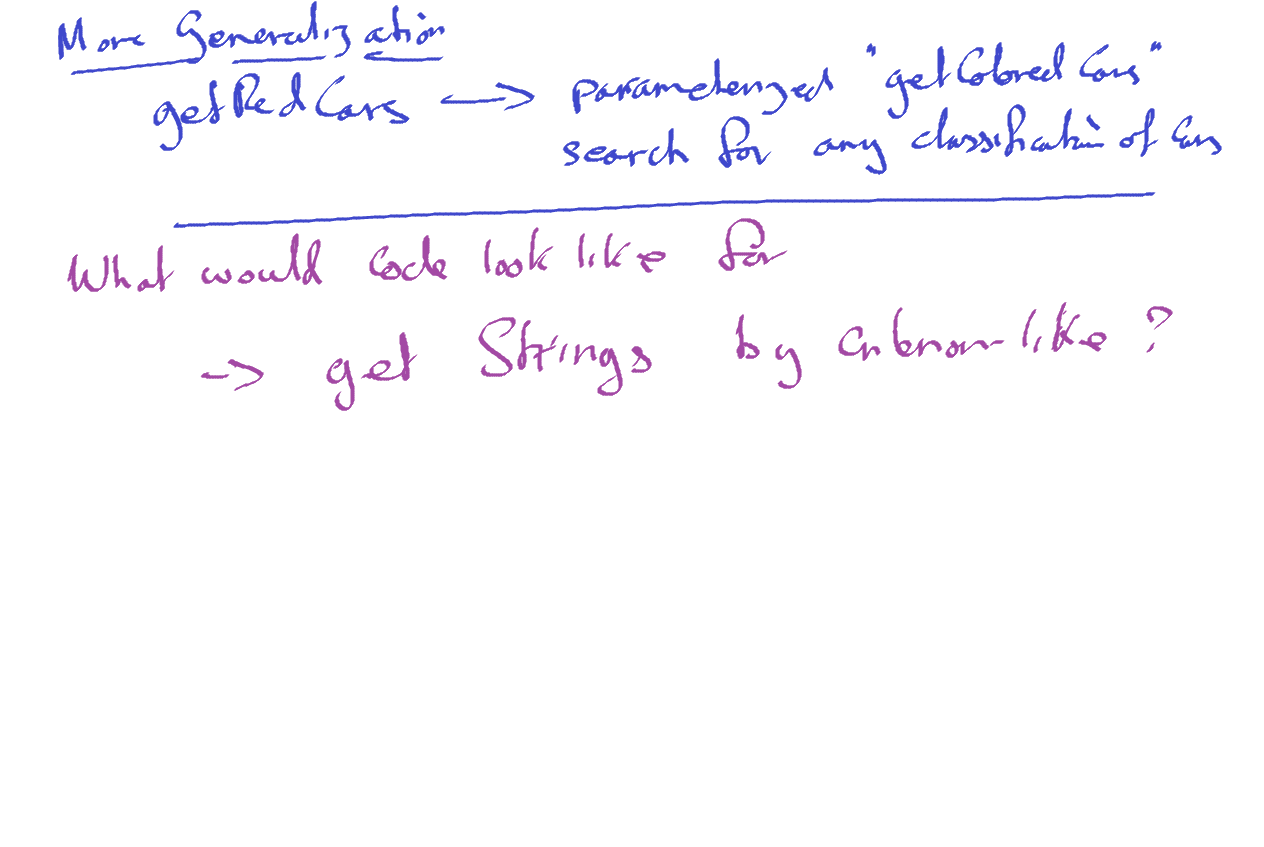 More Generalization
getRedCars → parameterized "getColored Cars"
search for any classification of Cars
What would code look like for
→ get Strings by Criterion like ?